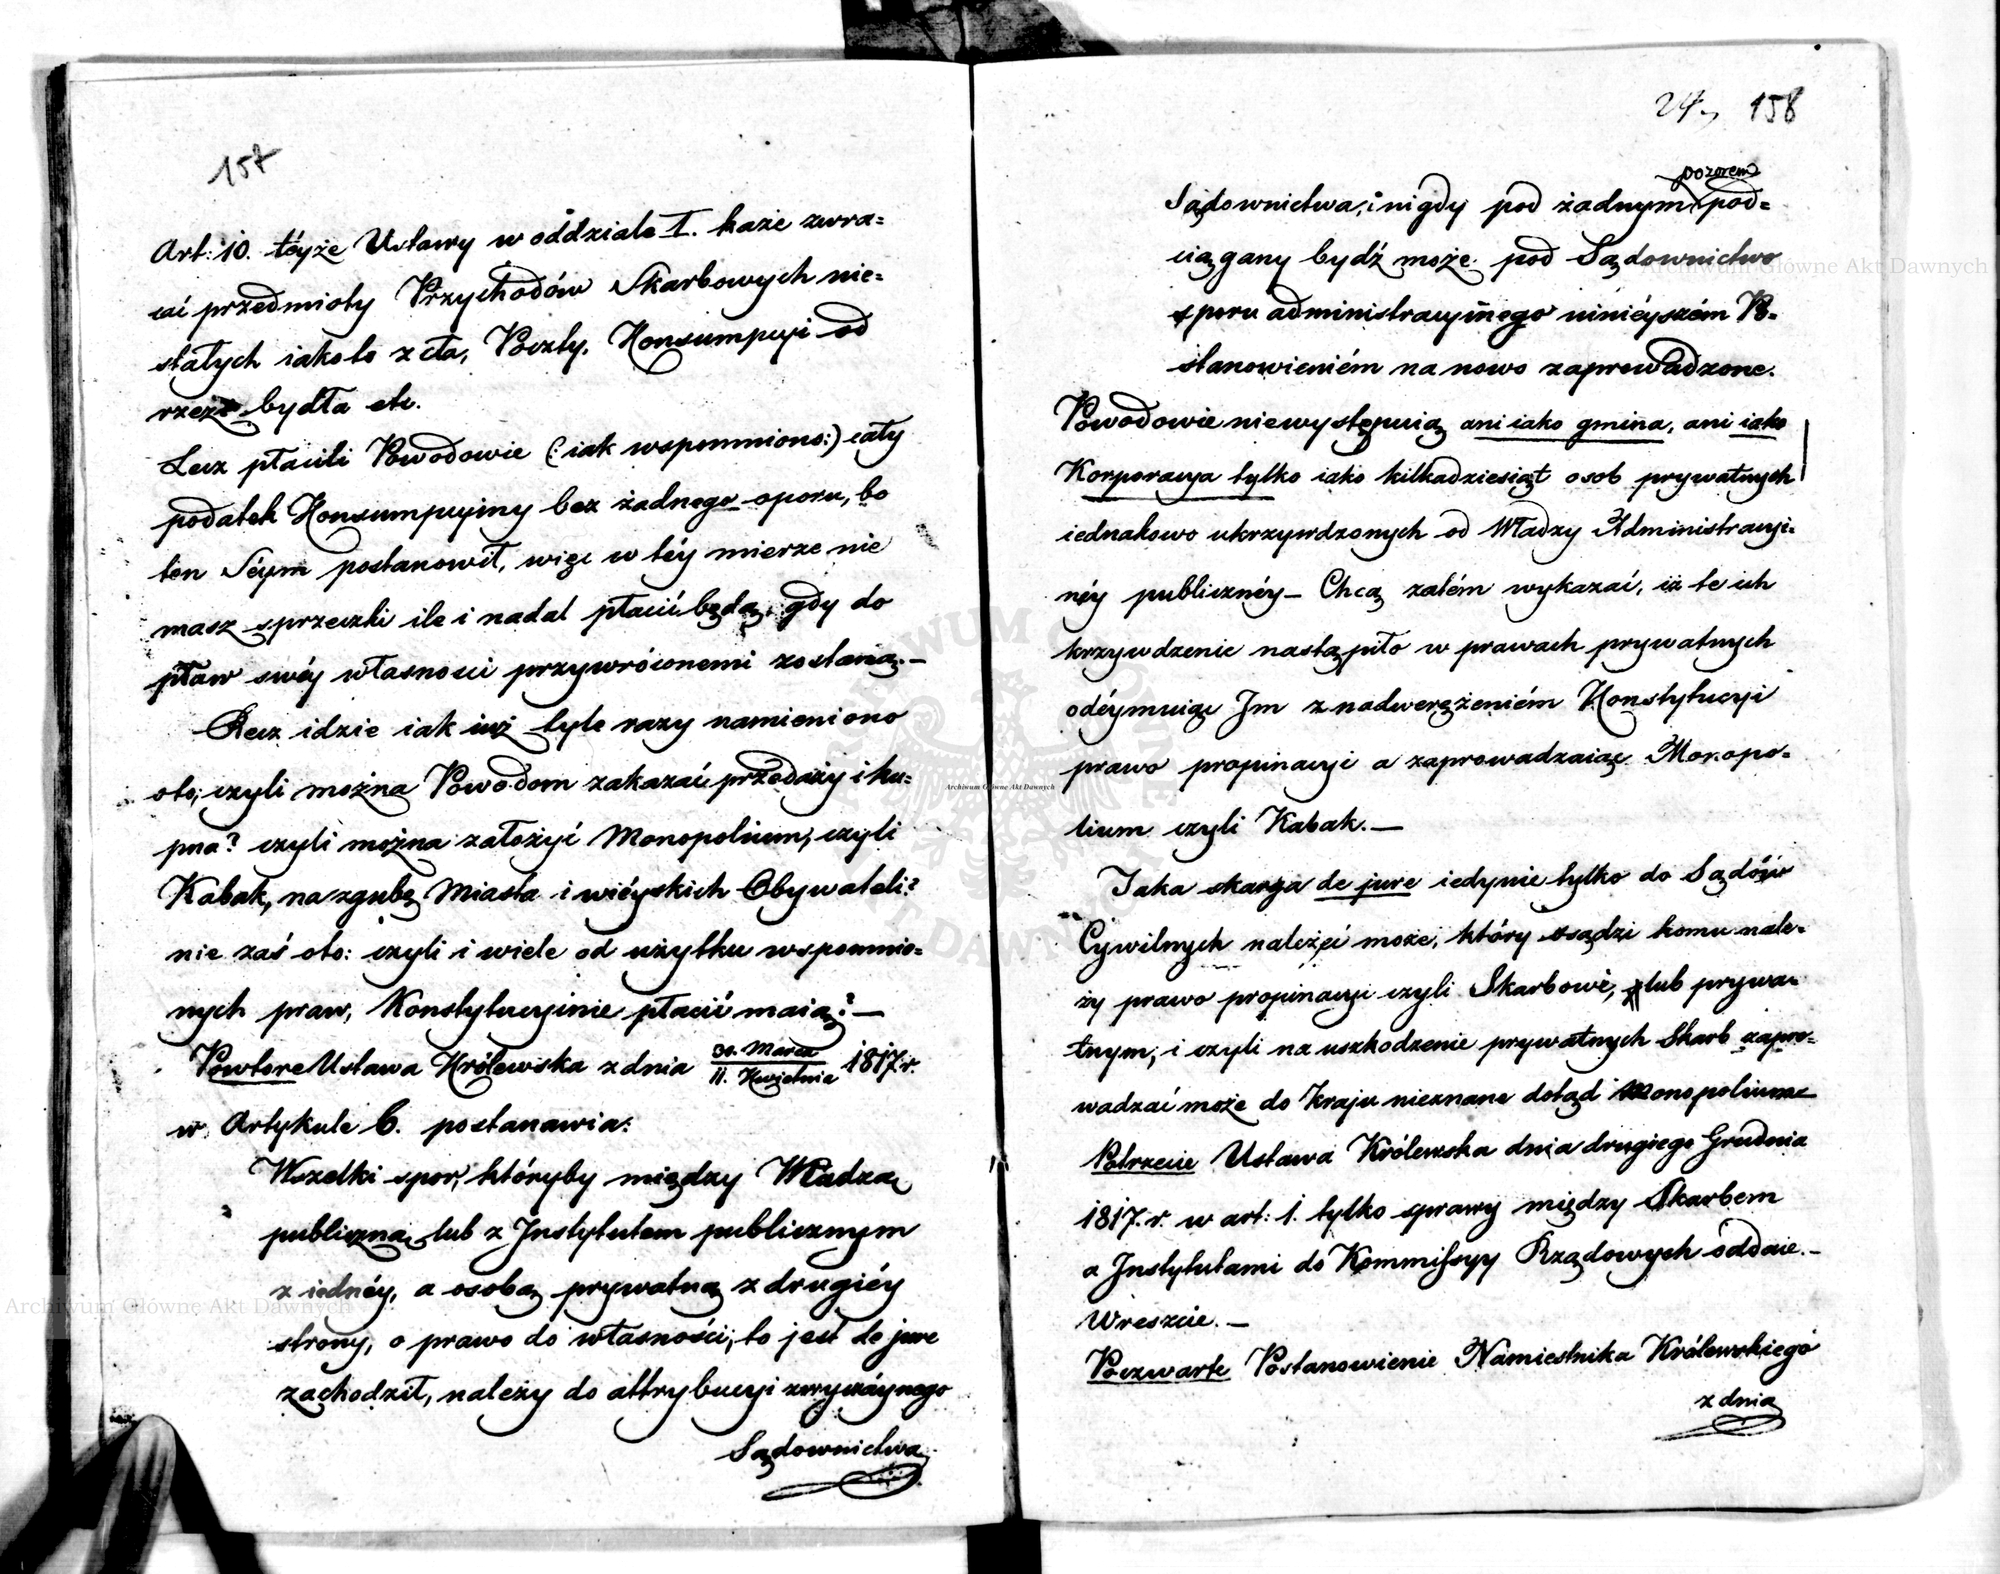 157
Art: 10. téyże Ustawy w oddziale I. każe zwra=
cać przedmioty Przychodów Skarbowych nie=
stałych iakoto z cła, Poczty, Konsumpcyi od
rzezi bydła etc.
Lecz płacili Powodowie (: iak wspomniono:) cały
podatek Konsumpcyiny bez żadnego oporu, bo
ten Séym postanowił, więc w téy mierze nie
masz sprzeczki ile i nadal płacić będą, gdy do
praw swéy własności przywróconemi zostaną.—
Rzecz idzie iak iuż tyle razy namieniono
oto; czyli można Powodom zakazać przedaży i ku=
pna? czyli można założyć Monopolium, czyli
Kabak, na zgubę Miasta i wiéyskich Obywateli?
nie zaś oto: czyli i wiele od użytku wspomnio=
nych praw, Konstytucyinie płacić maią?—
Powtore Ustawa Królewska z dnia 30. Marca / 11. Kwietnia 1817. r.
w Artykule 6. postanawia:
Wszelki spor, któryby między Władzą
publiczną, lub z Instytutem publicznym
z iednéy, a osobą prywatną z drugiéy
strony, o prawo do własności, to jest de jure
zachodził, należy do attrybucyi zwyczáynego
Sądownictwa
24. 158
Sądownictwa, i nigdy pod żadnym pozorem pod=
ciągany bydź może pod Sądownictwo
sporu administracyinego ninieyszém Po=
stanowieniém na nowo zaprowadzone.
Powodowie niewystępuią ani iako gmina, ani iako
Korporacya tylko iako kilkadziesiąt osob prywatnych
iednakowo ukrzywdzonych od Władzy Administracyi=
néy publicznéy— Chcą zatém wykazać, iż te ich
krzywdzenie nastąpiło w prawach prywatnych
odéymuiąc Im z nadwerężeniém Konstytucyi
prawo propinacyi a zaprowadzaiąc Monopo=
lium czyli Kabak.—
Taka skarga de jure iedynie tylko do Sądów
Cywilnych należéć może, który osądzi komu nale=
ży prawo propinacyi czyli Skarbowi, lub prywa=
tnym, i czyli na uszkodzenie prywatnych Skarb zapro=
wadzać może do Kraju nieznane dotąd monopolium
Potrzecie Ustawa Królewska dnia drugiego Grudnia
1817. r. w art: 1. tylko sprawy między Skarbem
a Instytutami do Kommissyy Rządowych oddaie.—
Wreszcie.—
Poczwarte Postanowienie Namiestnika Królewskiego
z dnia
Archiwum Główne Akt Dawnych
Archiwum Główne Akt Dawnych
Archiwum Główne Akt Dawnych